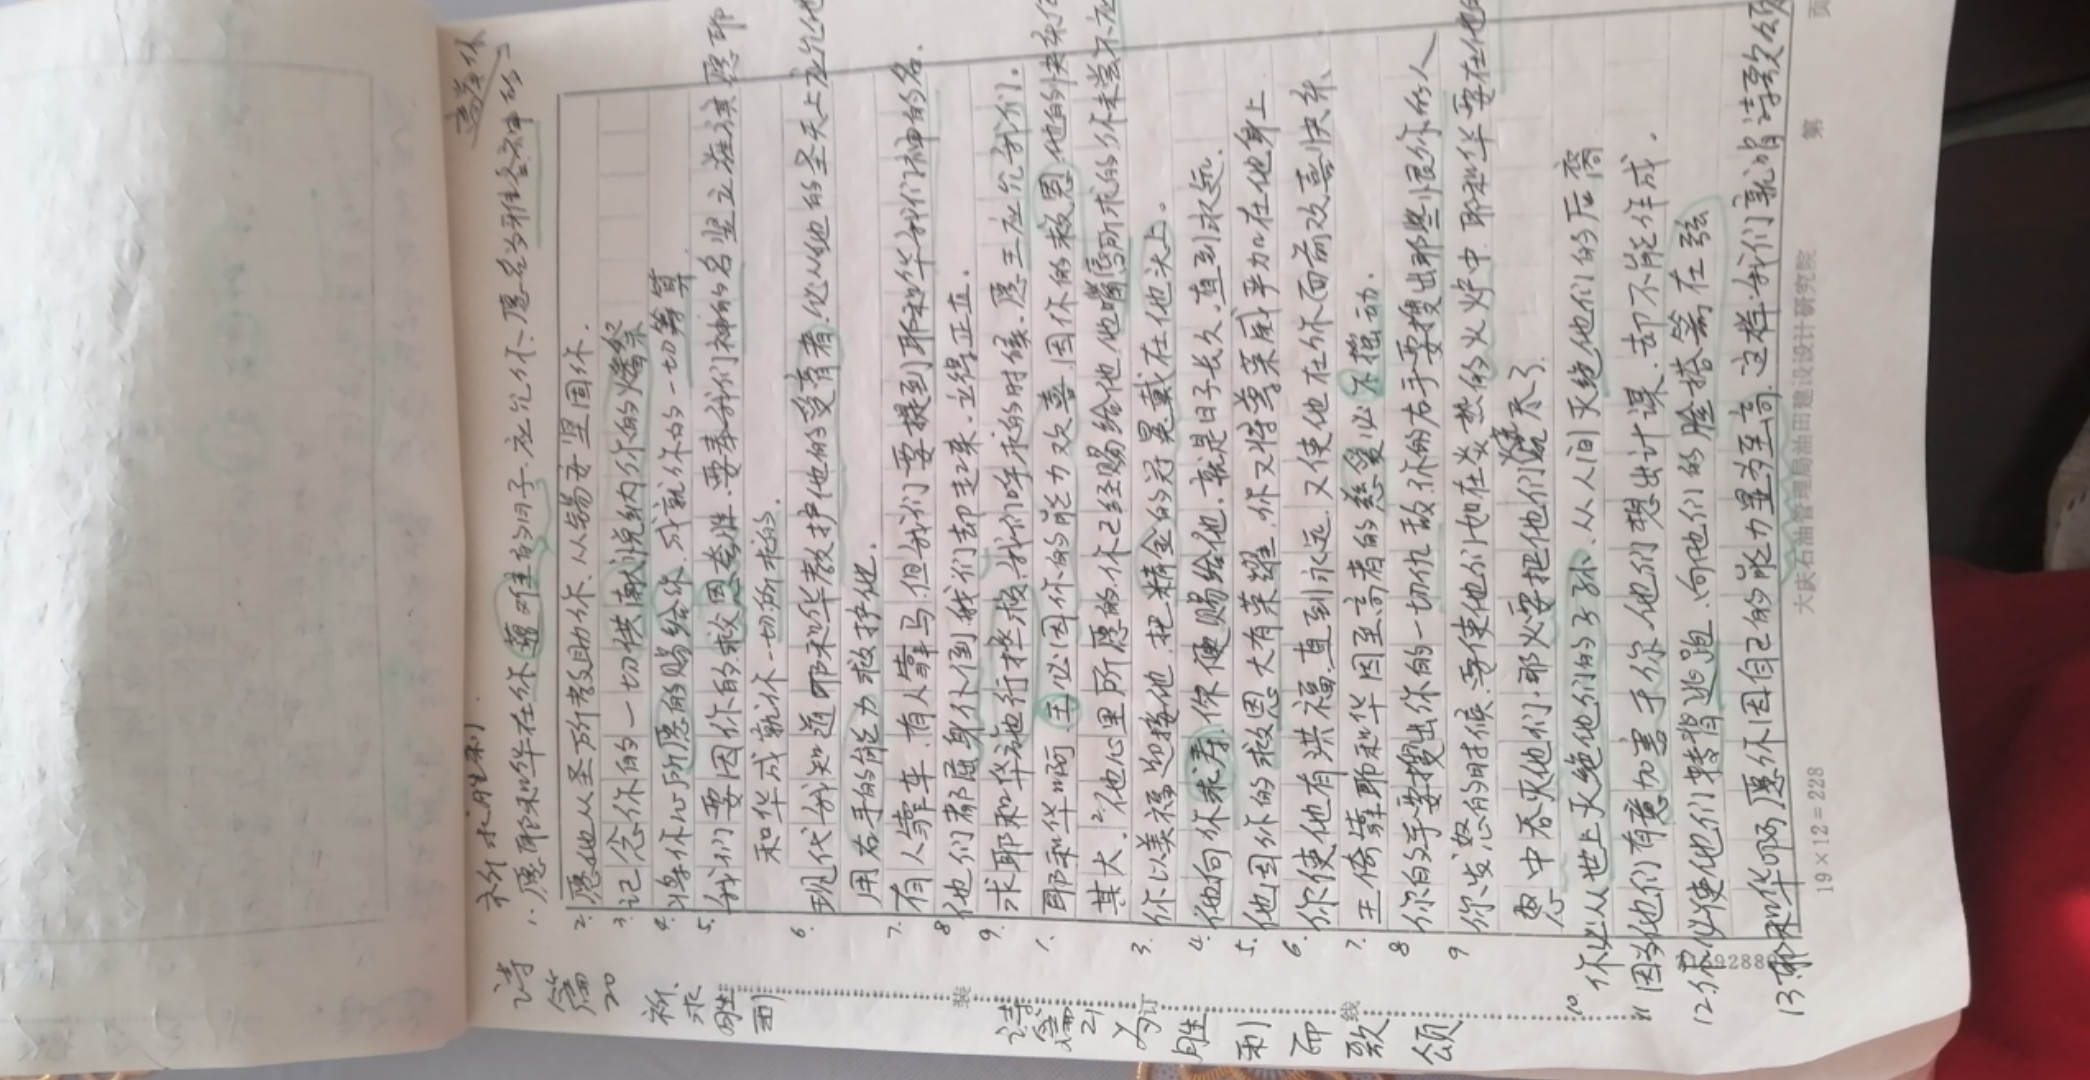 诗篇20 祈求胜利
祈求胜利.
高举你
1. 愿耶和华在你遭难的日子.应允你、愿名为雅各神的
2. 愿他从圣所救助你、从锡安坚固你.
3. 记念你的一切供献悦纳你的燔祭
4. 将你心所愿的赐给你.成就你的一切筹算.
5. 我们要因你的救恩夸胜.要奉我们神的名竖立旌旗 愿耶
和华成就你一切所求的.
6. 现代我知道耶和华救护他的受膏者.必从他的圣天上应允他
用右手的能力救护他.
7. 有人靠车.有人靠马.但我们要提到耶和华我们神的名.
8 他们都屈身仆倒我们却起来.立得正直.
9. 求耶和华施行拯救.我们呼求的时候.愿王应允我们.
诗篇21 为胜利而歌颂
1. 耶和华啊.王必因你的能力欢喜.因你的救恩.他的快乐何
其大. 2.他心里所愿的你已经赐给他.他嘴唇所求的你未尝不应
3. 你以美福迎接他.把精金的冠冕戴在他头上。
4. 他向你求寿.你便赐给他.就是日子长久.直到永远.
5. 他因你的救恩大有荣耀.你又将尊荣威严加在他身上
6. 你使他有洪福直到永远.又使他在你面前欢喜快乐、
7. 王倚靠耶和华因至高者的慈爱必不摇动.
8 你的手要搜出你的一切仇敌.你的右手要搜出那些恨你的人
9 你发怒的时候.要使他们如在炎热的火炉中.耶和华要在他的
怒中吞灭他们.那火要把他们烧尽了.
10 你必从世上灭绝他们的子孙、从人间灭绝他们的后裔
11 因为他们有意加害于你.他们想出计谋.却不能作成.
12.你必使他们转背逃跑.向他们的脸搭箭在弦
13.耶和华啊愿你因自己的能力显为至高.这样.我们就唱诗歌颂
装
订
线
92888
19×12=228
大庆石油管理局油田建设设计研究院
第
页